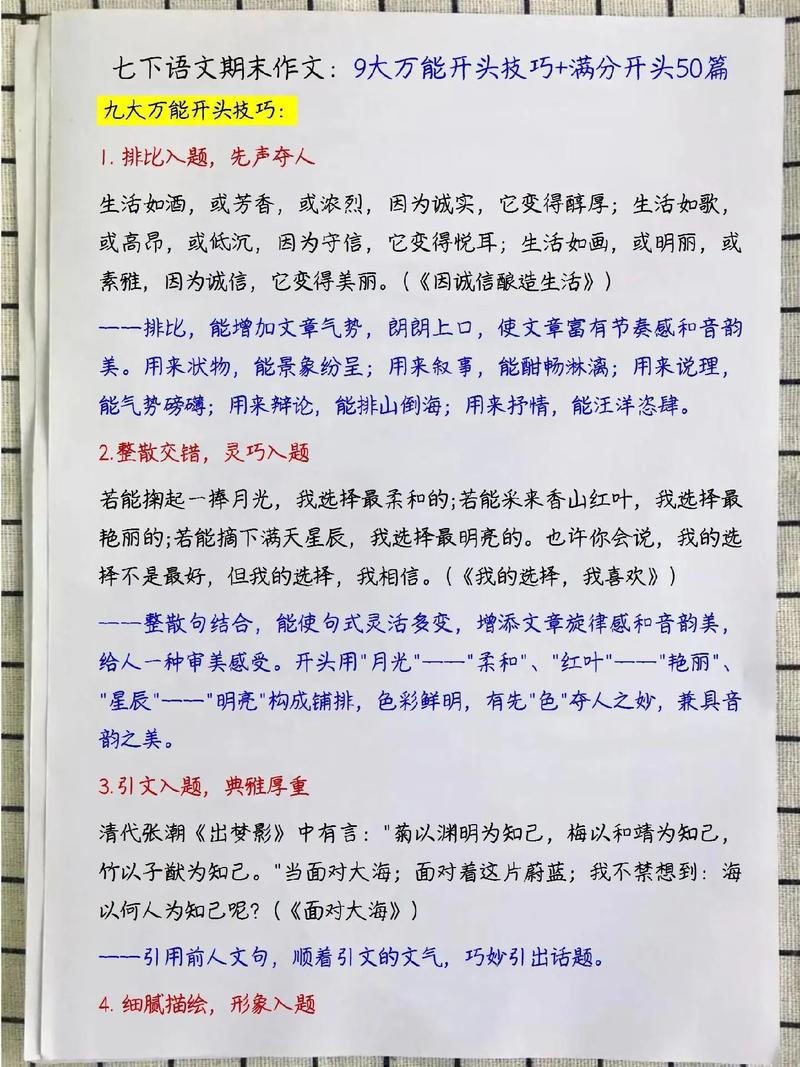 七下语文期末作文：9大万能开头技巧+满分开头50篇
九大万能开头技巧：
1. 排比入题，先声夺人
生活如酒，或芳香，或浓烈，因为诚实，它变得醇厚；生活如歌，
或高昂，或低沉，因为守信，它变得悦耳；生活如画，或明丽，或
素雅，因为诚信，它变得美丽。（《因诚信酿造生活》）
——排比，能增加文章气势，朗朗上口，使文章富有节奏感和音韵
美。用来状物，能景象纷呈；用来叙事，能酣畅淋漓；用来说理，
能气势磅礴；用来辩论，能排山倒海；用来抒情，能汪洋恣肆。
2.整散交错，灵巧入题
若能掬起一捧月光，我选择最柔和的;若能采来香山红叶，我选择最
艳丽的;若能摘下满天星辰，我选择最明亮的。也许你会说，我的选
择不是最好，但我的选择，我相信。（《我的选择，我喜欢》）
——整散句结合，能使句式灵活多变，增添文章旋律感和音韵美，
给人一种审美感受。开头用"月光"——"柔和"、"红叶"——"艳丽"、
"星辰"——"明亮"构成铺排，色彩鲜明，有先"色"夺人之妙，兼具音
韵之美。
3.引文入题，典雅厚重
清代张潮《出梦影》中有言："菊以渊明为知己，梅以和靖为知己，
竹以子猷为知己。"当面对大海；面对着这片蔚蓝；我不禁想到：海
以何人为知己呢？（《面对大海》）
——引用前人文句，顺着引文的文气，巧妙引出话题。
4. 细腻描绘，形象入题